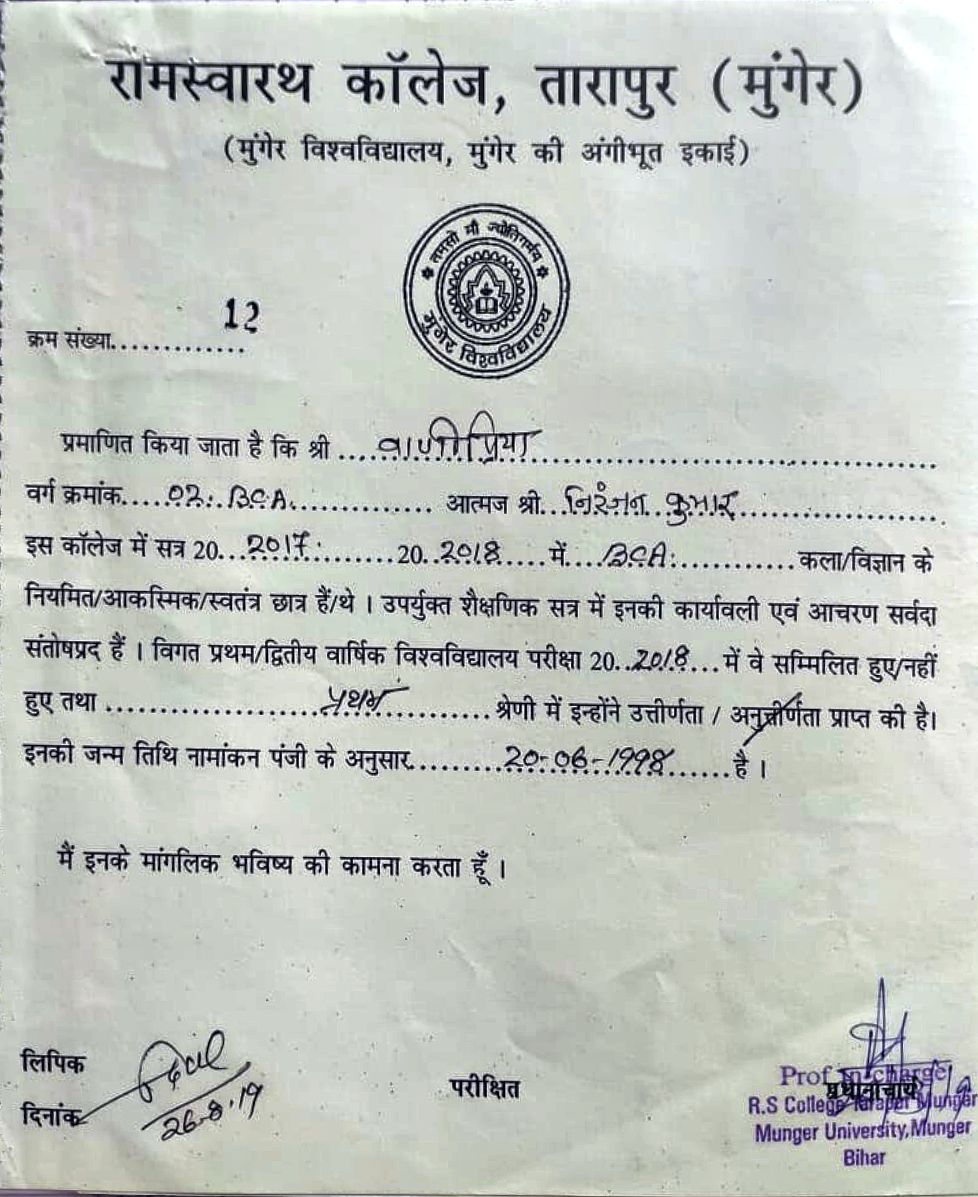 रामस्वारथ कॉलेज, तारापुर (मुंगेर)
(मुंगेर विश्वविद्यालय, मुंगेर की अंगीभूत इकाई)
तमसो मा ज्योतिर्गमय
मुंगेर विश्वविद्यालय
क्रम संख्या.............12
प्रमाणित किया जाता है कि श्री ....वाणी प्रिया....
वर्ग क्रमांक....02. BCA.............. आत्मज श्री...निरंजन कुमार....
इस कॉलेज में सत्र 20...2017........20..2018...में....BCA:...........कला/विज्ञान के
नियमित/आकस्मिक/स्वतंत्र छात्र हैं/थे । उपर्युक्त शैक्षणिक सत्र में इनकी कार्यावली एवं आचरण सर्वदा
संतोषप्रद हैं । विगत प्रथम/द्वितीय वार्षिक विश्वविद्यालय परीक्षा 20..2018...में वे सम्मिलित हुए/नहीं
हुए तथा ....................प्रथम.......... श्रेणी में इन्होंने उत्तीर्णता / अनुत्तीर्णता प्राप्त की है।
इनकी जन्म तिथि नामांकन पंजी के अनुसार.........20-06-1998......है ।
मैं इनके मांगलिक भविष्य की कामना करता हूँ ।
लिपिक
दिनांक 26-8-19
परीक्षित
प्रधानाचार्य
Prof In-charge
R.S College Tarapur Munger
Munger University,Munger
Bihar